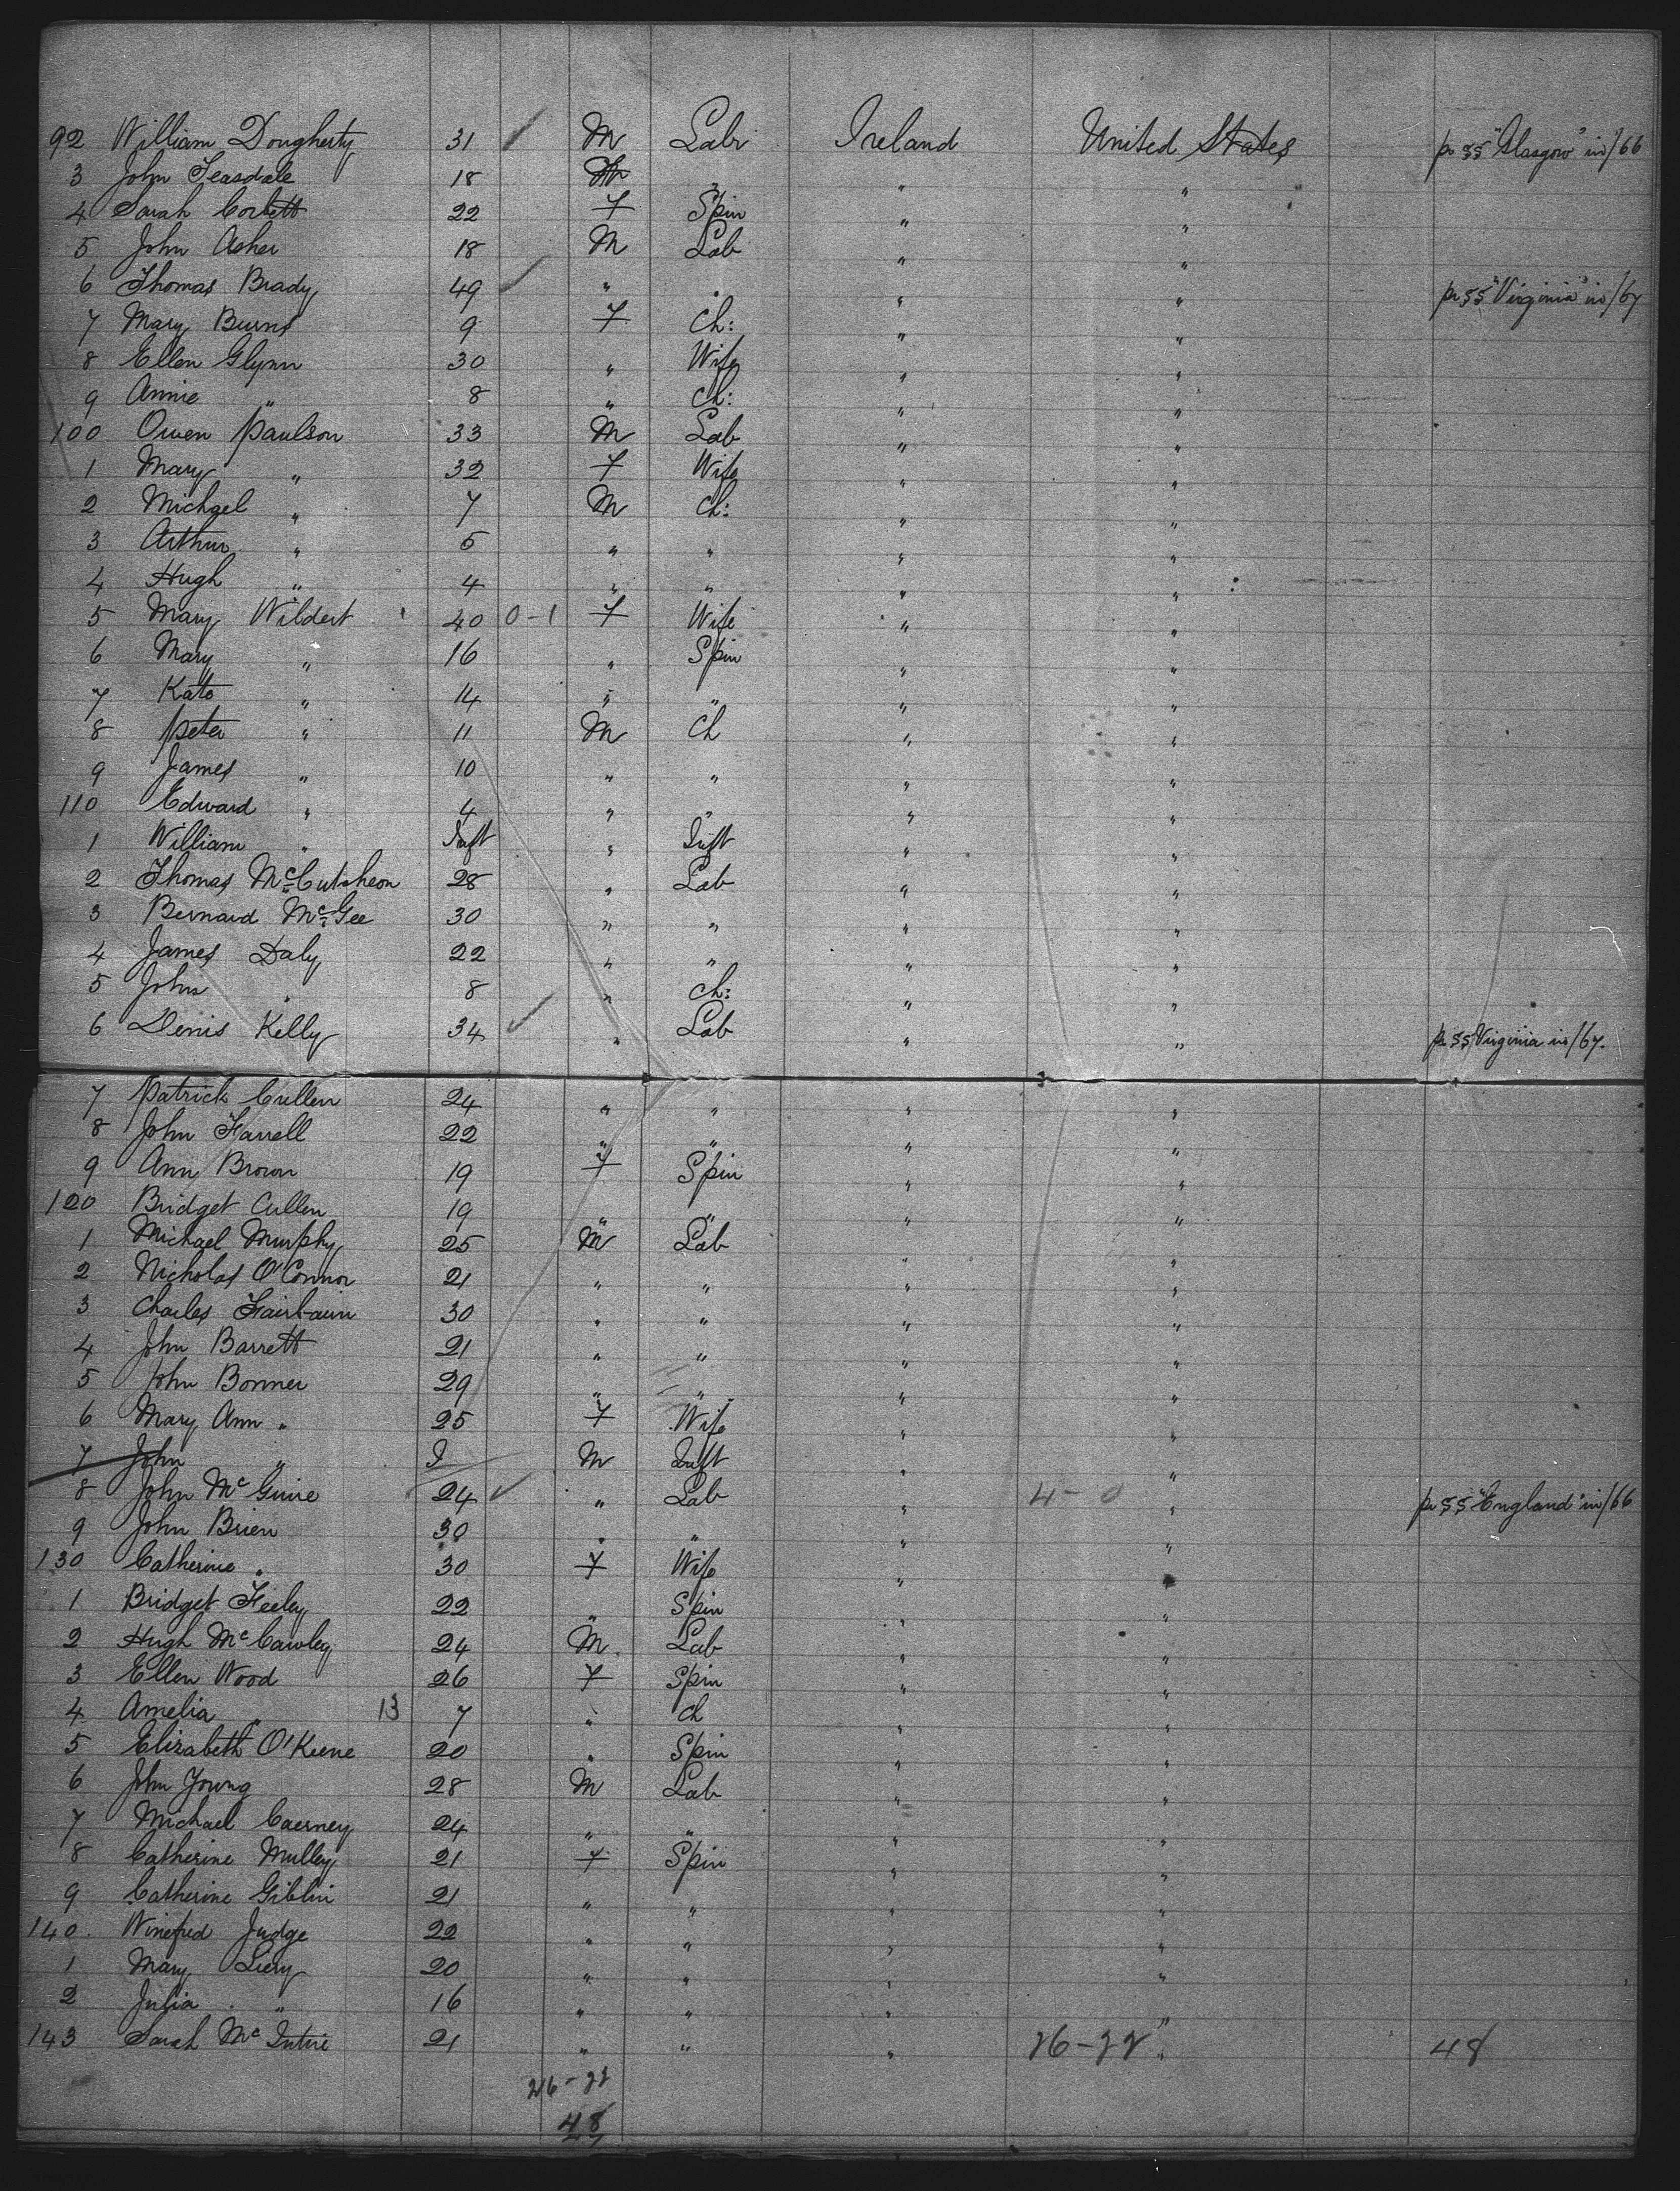 92 William Dougherty 31 M Labr Ireland United States pr SS "Glasgow" in/66
3 John Teasdale 18 M " " "
4 Sarah Corbett 22 F Spin " "
5 John Asher 18 M Lab " "
6 Thomas Brady 49 " " " " pr SS "Virginia" in/67
7 Mary Burns 9 F Ch: " "
8 Ellen Glynn 30 " Wife " "
9 Annie " 8 " Ch: " "
100 Owen Paulson 33 M Lab " "
1 Mary " 32 F Wife " "
2 Michael " 7 M Ch: " "
3 Arthur " 5 " " " "
4 Hugh " 4 " " " "
5 Mary Wildert 40 0-1 F Wife " "
6 Mary " 16 " Spin " "
7 Kate " 14 " " " "
8 Peter " 11 M Ch " "
9 James " 10 " " " "
110 Edward " 4 " " " "
1 William " Inft " Inft " "
2 Thomas McCutcheon 28 " Lab " "
3 Bernard McGee 30 " " " "
4 James Daly 22 " " " "
5 John " 8 " Ch: " "
6 Denis Kelly 34 " Lab " " pr SS Virginia in/67.
7 Patrick Cullen 24 " " " "
8 John Farrell 22 " " " "
9 Ann Brown 19 F Spin " "
120 Bridget Cullen 19 " " " "
1 Michael Murphy 25 M Lab " "
2 Nicholas O'Connor 21 " " " "
3 Charles Fairbairn 30 " " " "
4 John Barrett 21 " " " "
5 John Bonner 29 " " " "
6 Mary Ann " 25 F Wife " "
7 John " I M Inft " "
8 John McGuire 24 " Lab " 4-0 " pr SS "England" in/66
9 John Brien 30 " " " "
130 Catherine " 30 F Wife " "
1 Bridget Feeley 22 " Spin " "
2 Hugh McCawley 24 M Lab " "
3 Ellen Wood 26 F Spin " "
4 Amelia " 13 7 " Ch " "
5 Elizabeth O'Keene 20 " Spin " "
6 John Young 28 M Lab " "
7 Michael Caerney 24 " " " "
8 Catherine Mulley 21 F Spin " "
9 Catherine Giblin 21 " " " "
140 Winefred Judge 22 " " " "
1 Mary Liery 20 " " " "
2 Julia " 16 " " " "
143 Sarah McIntire 21 " " " 26-22 " 48
26-22
48